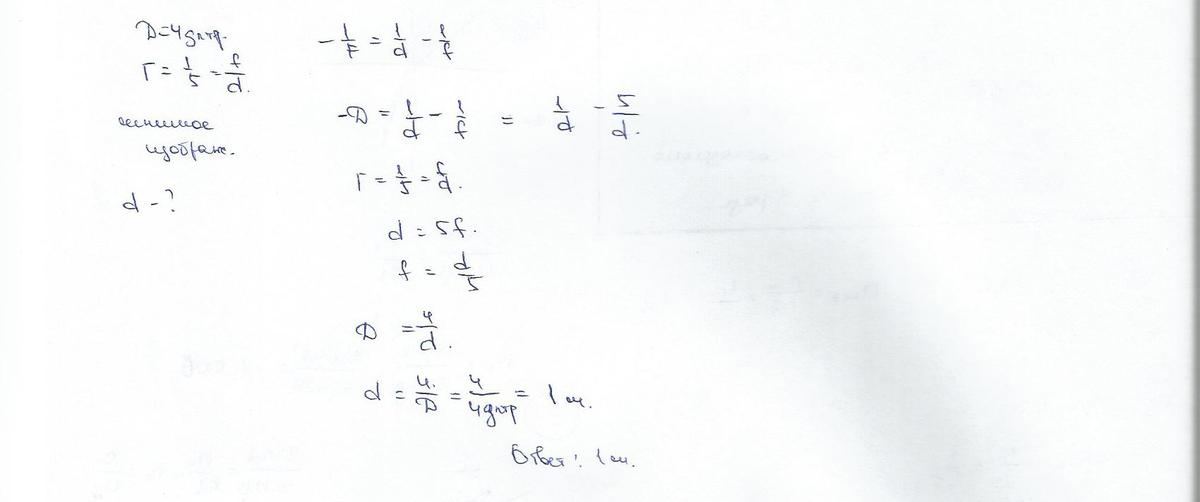 D=4дптр.
Г = 1/5 = f/d.
мнимое
изображ.
d - ?
- 1/F = 1/d - 1/f
-D = 1/d - 1/f = 1/d - 5/d.
Г = 1/5 = f/d.
d = 5f.
f = d/5
D = 4/d.
d = 4/D = 4/4дптр = 1м.
Ответ: 1м.